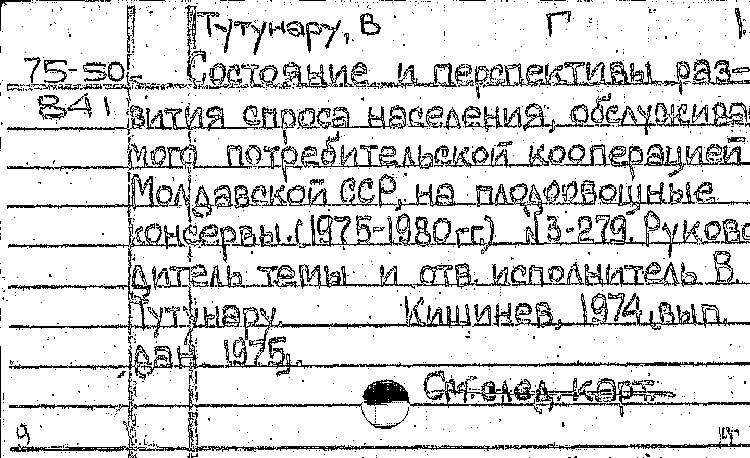 Тутунару, В Г
75-50 Состояние и перспективы раз-
841 вития спроса населения, обслуживае
мого потребительской кооперацией
Молдавской ССР, на плодоовощные
консервы. (1975-1980 гг.) №3-279. Руково
дитель темы и отв. исполнитель В.
Тутунару. Кишинев, 1974, вып.
дан 1975.
См. след. карт.
9